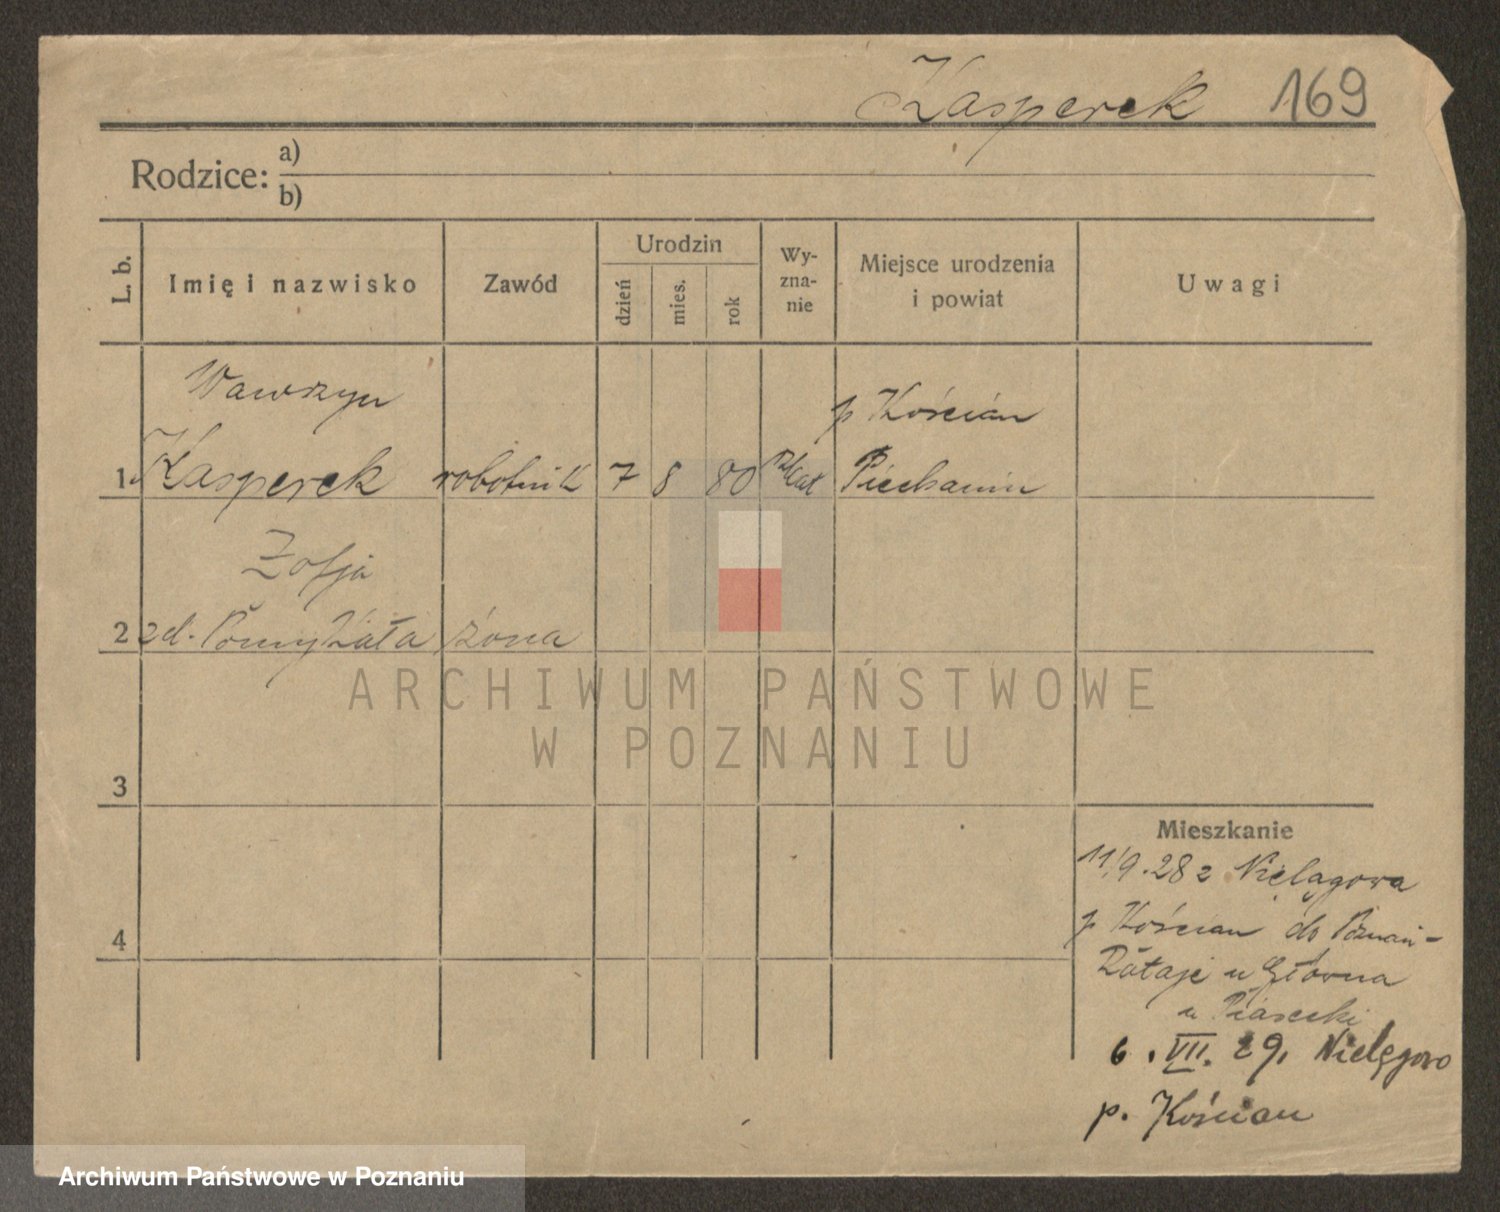 Kasperek 169
Rodzice: a)
b)
L. b.
Imię i nazwisko
Zawód
Urodzin
dzień
mies.
rok
Wy-
zna-
nie
Miejsce urodzenia
i powiat
Uwagi
Wawrzyn
p Kościan
1 Kasperek robotnik 7 8 80 Rkat Piechanin
Zofja
2 zd. Pomykała żona
ARCHIWUM PAŃSTWOWE
W POZNANIU
3
Mieszkanie
11/9.28 z Nielągowa
4
p Kościan do Poznań-
Rataje u Główna
u Piasecki
6. VII. 29. Nielęgowo
p. Kościan
Archiwum Państwowe w Poznaniu